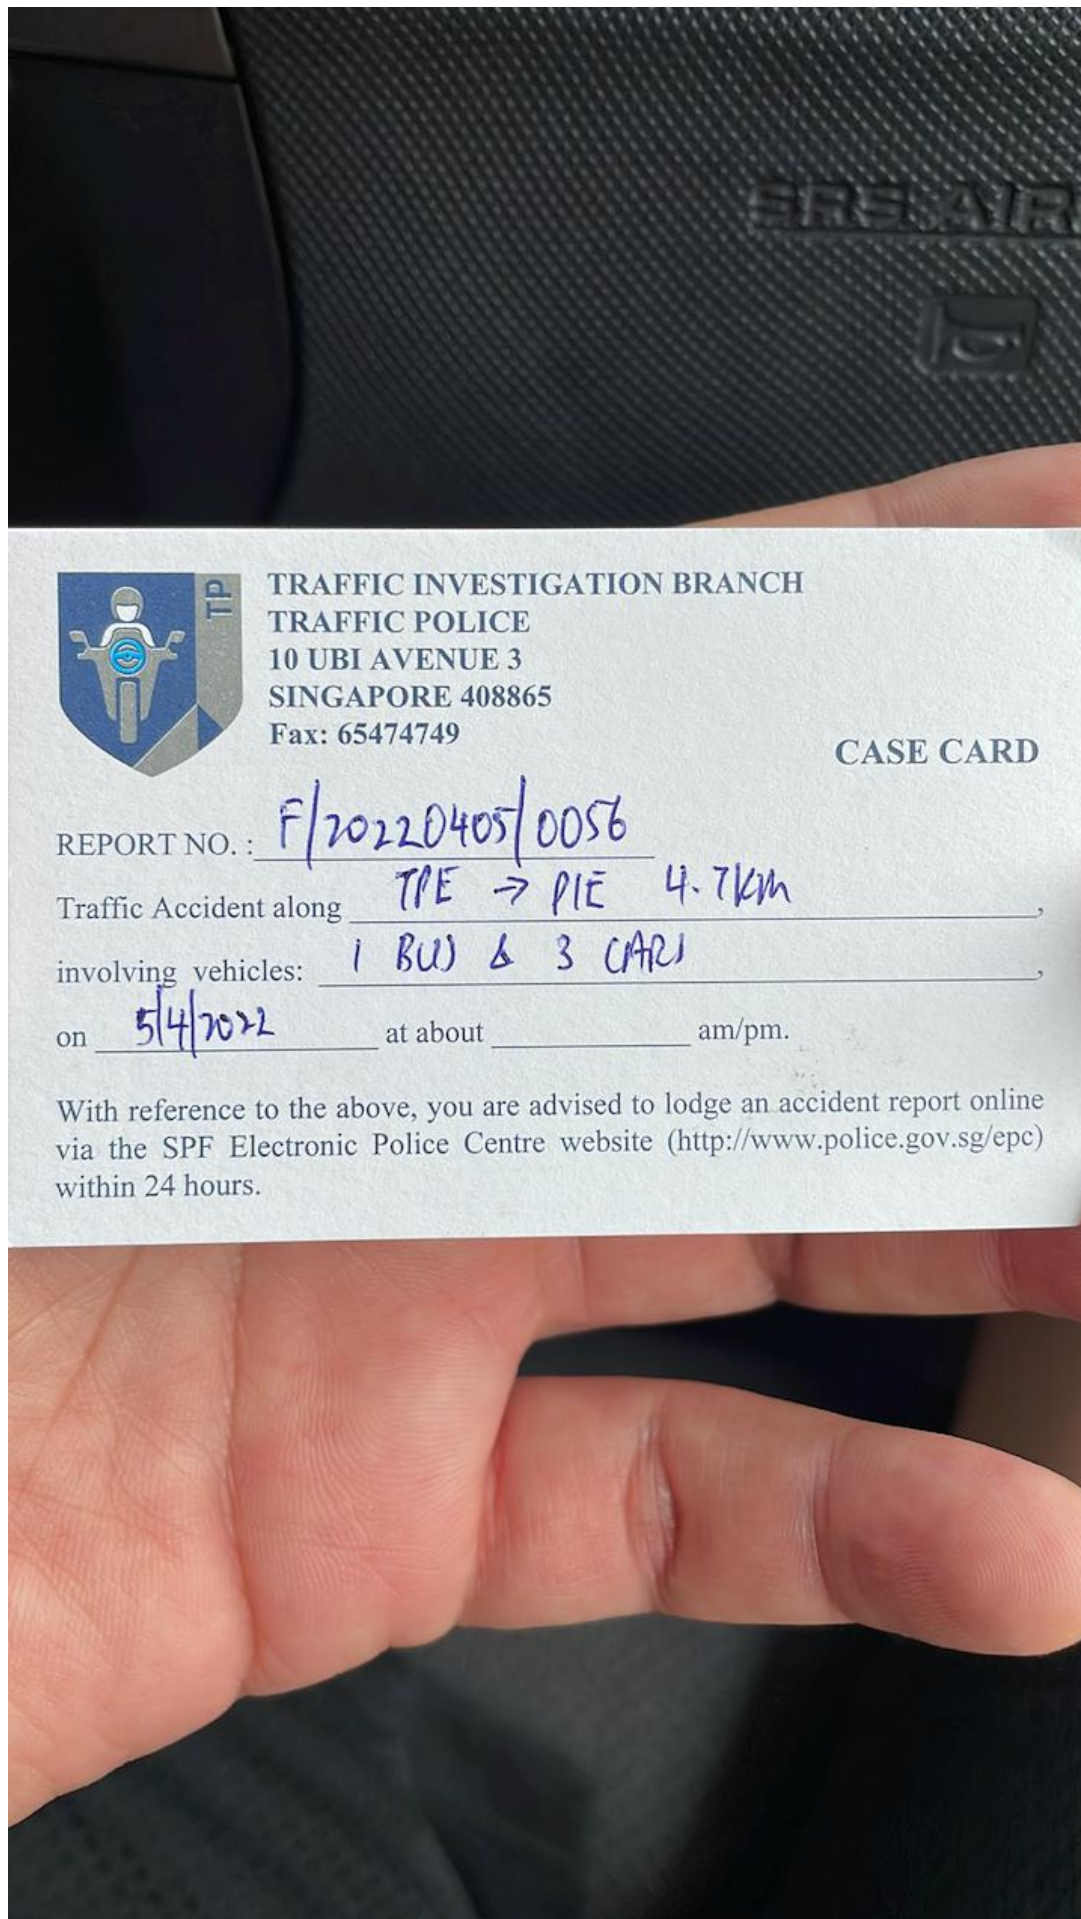 SRS AIR
TP
TRAFFIC INVESTIGATION BRANCH
TRAFFIC POLICE
10 UBI AVENUE 3
SINGAPORE 408865
Fax: 65474749
CASE CARD
REPORT NO. : F/20220405/0056
Traffic Accident along TPE → PIE 4.7km ,
involving vehicles: 1 BUS & 3 CARS ,
on 5/4/2022 at about ____ am/pm.
With reference to the above, you are advised to lodge an accident report online
via the SPF Electronic Police Centre website (http://www.police.gov.sg/epc)
within 24 hours.